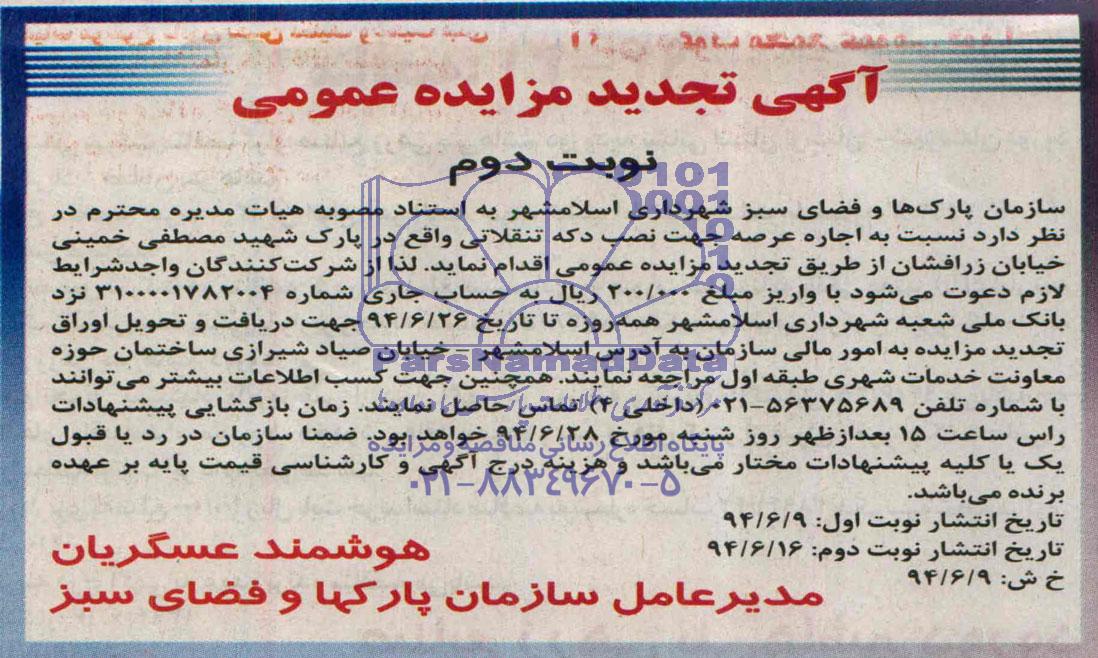 آگهی تجدید مزایده عمومی
نوبت دوم
سازمان پارک‌ها و فضای سبز شهرداری اسلامشهر به استناد مصوبه هیات مدیره محترم در
نظر دارد نسبت به اجاره عرصه جهت نصب دکه تنقلاتی واقع در پارک شهید مصطفی خمینی
خیابان زرافشان از طریق تجدید مزایده عمومی اقدام نماید. لذا از شرکت‌کنندگان واجدشرایط
لازم دعوت می‌شود با واریز مبلغ ۲۰۰/۰۰۰ ریال به حساب جاری شماره ۳۱۰۰۰۰۱۷۸۲۰۰۴ نزد
بانک ملی شعبه شهرداری اسلامشهر همه‌روزه تا تاریخ ۹۴/۶/۲۶ جهت دریافت و تحویل اوراق
تجدید مزایده به امور مالی سازمان به آدرس اسلامشهر - خیابان صیاد شیرازی ساختمان حوزه
معاونت خدمات شهری طبقه اول مراجعه نمایند. همچنین جهت کسب اطلاعات بیشتر می‌توانند
با شماره تلفن ۵۶۳۷۵۶۸۹-۰۲۱ (داخلی ۴) تماس حاصل نمایند. زمان بازگشایی پیشنهادات
راس ساعت ۱۵ بعدازظهر روز شنبه مورخ ۹۴/۶/۲۸ خواهد بود. ضمنا سازمان در رد یا قبول
یک یا کلیه پیشنهادات مختار می‌باشد و هزینه درج آگهی و کارشناسی قیمت پایه بر عهده
برنده می‌باشد.
تاریخ انتشار نوبت اول: ۹۴/۶/۹
تاریخ انتشار نوبت دوم: ۹۴/۶/۱۶
خ ش: ۹۴/۶/۹
هوشمند عسگریان
مدیرعامل سازمان پارکها و فضای سبز
ParsNamadData
پایگاه اطلاع رسانی مناقصه و مزایده
۰۲۱-۸۸۳۴۹۶۷۰-۵